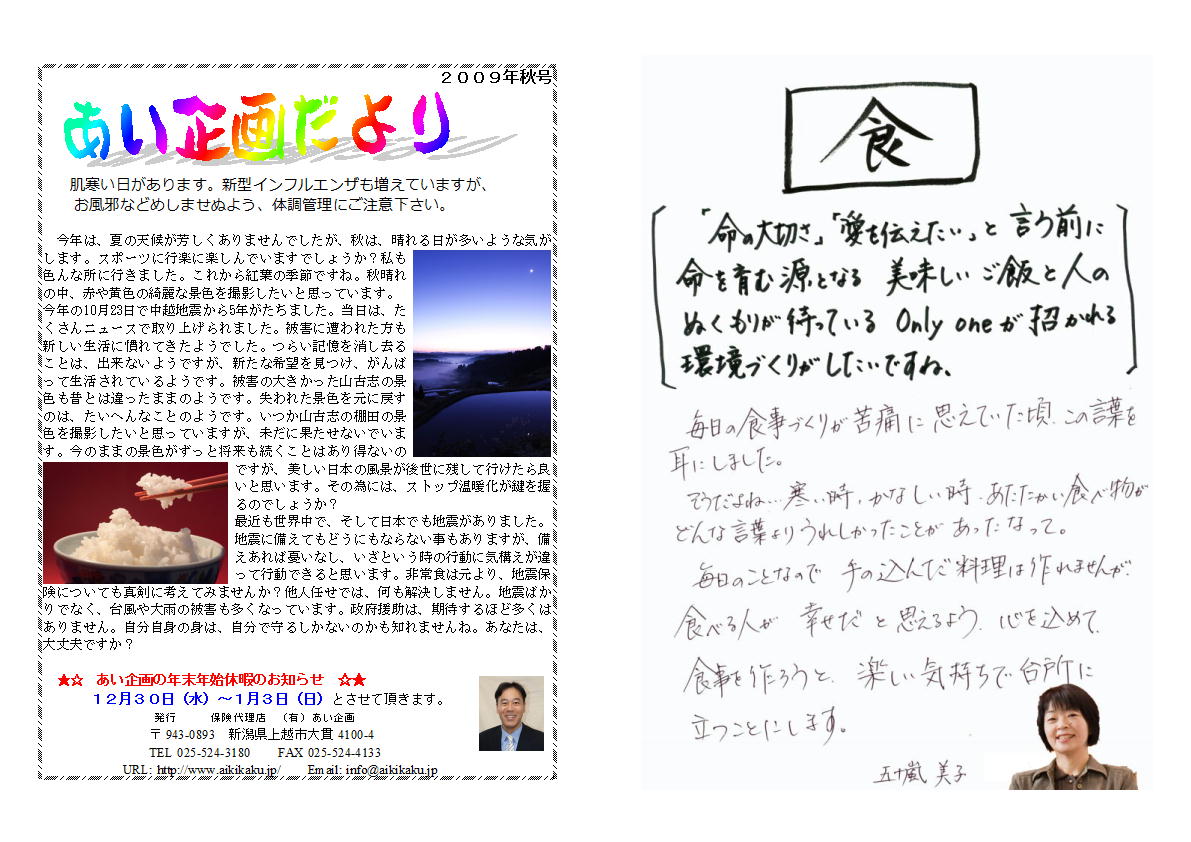 2009年秋号
あい企画だより
肌寒い日があります。新型インフルエンザも増えていますが、
お風邪などめしませぬよう、体調管理にご注意下さい。
今年は、夏の天候が芳しくありませんでしたが、秋は、晴れる日が多いような気が
します。スポーツに行楽に楽しんでいますでしょうか？私も
色んな所に行きました。これから紅葉の季節ですね。秋晴れ
の中、赤や黄色の綺麗な景色を撮影したいと思っています。
今年の10月23日で中越地震から5年がたちました。当日は、た
くさんニュースで取り上げられました。被害に遭われた方も
新しい生活に慣れてきたようでした。つらい記憶を消し去る
ことは、出来ないようですが、新たな希望を見つけ、がんば
って生活されているようです。被害の大きかった山古志の景
色も昔とは違ったままのようです。失われた景色を元に戻す
のは、たいへんなことのようです。いつか山古志の棚田の景
色を撮影したいと思っていますが、未だに果たせないでいま
す。今のままの景色がずっと将来も続くことはあり得ないの
ですが、美しい日本の風景が後世に残して行けたら良
いと思います。その為には、ストップ温暖化が鍵を握
るのでしょうか？
最近も世界中で、そして日本でも地震がありました。
地震に備えてもどうにもならない事もありますが、備
えあれば憂いなし、いざという時の行動に気構えが違
って行動できると思います。非常食は元より、地震保
険についても真剣に考えてみませんか？他人任せでは、何も解決しません。地震ばか
りでなく、台風や大雨の被害も多くなっています。政府援助は、期待するほど多くは
ありません。自分自身の身は、自分で守るしかないのかも知れませんね。あなたは、
大丈夫ですか？
★☆ あい企画の年末年始休暇のお知らせ ☆★
12月30日（水）～1月3日（日）とさせて頂きます。
発行 保険代理店 （有）あい企画
〒943-0893 新潟県上越市大貫 4100-4
TEL 025-524-3180 FAX 025-524-4133
URL: http://www.aikikaku.jp/ Email: info@aikikaku.jp
食
「命の大切さ」「愛を伝えたい」と言う前に
命を育む源となる 美味しいご飯と人の
ぬくもりが待っている Only oneが招かれる
環境づくりがしたいですね、
毎日の食事づくりが苦痛に思えていた頃、この言葉を
耳にしました。
そうだよね…寒い時、かなしい時、あたたかい食べ物が
どんな言葉よりうれしかったことがあったなって。
毎日のことなので 手の込んだ料理は作れませんが、
食べる人が 幸せだと思えるよう、心を込めて、
食事を作ろうと、楽しい気持ちで台所に
立つことにします。
五十嵐 美子